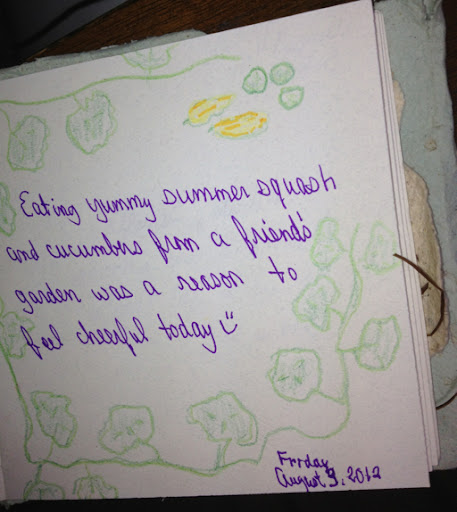 Eating yummy summer squash
and cucumbers from a friend's
garden was a reason to
feel cheerful today
Friday
August 3, 2012